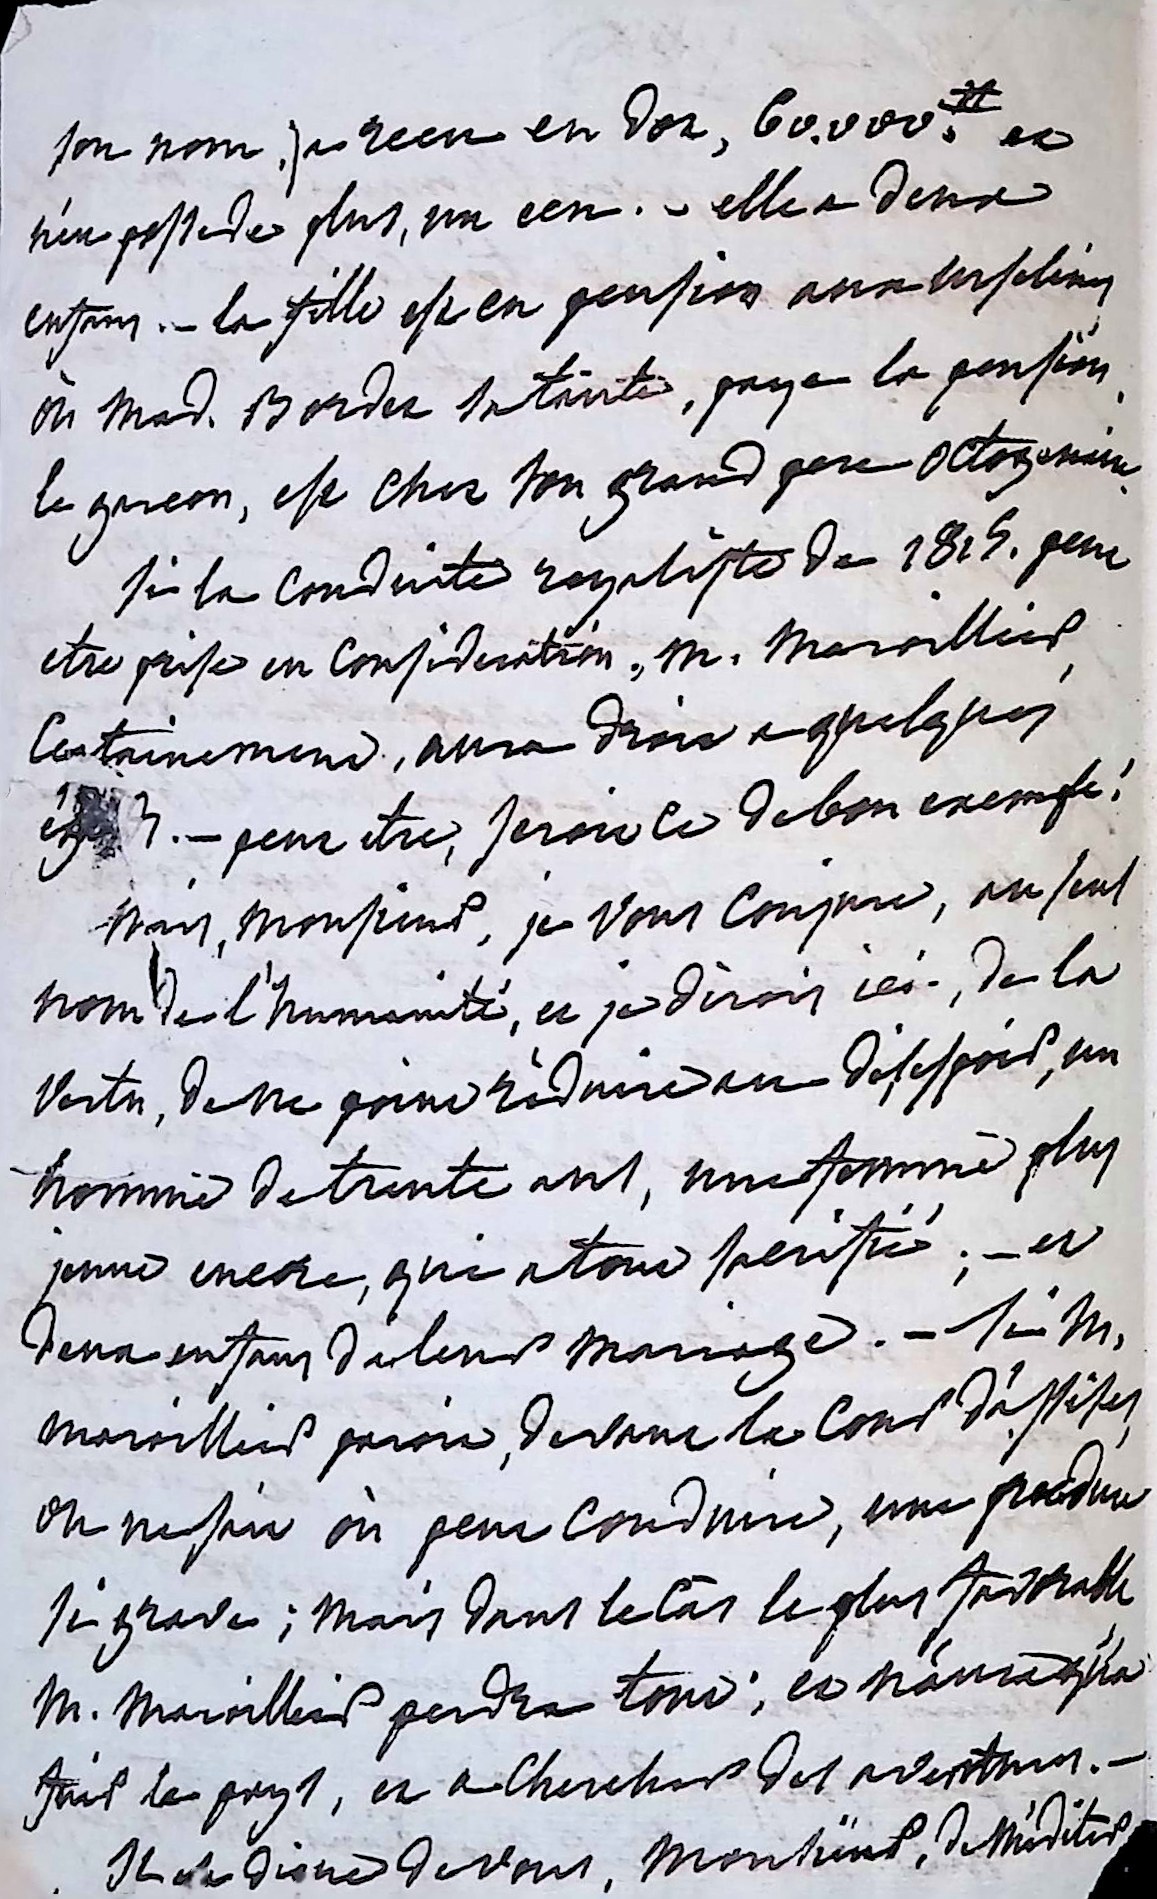 son nom, a recu en dot, 60.000.# et
n'en possede plus, un ecu. - elle a deux
enfans. - la fille est en pension aux ursulines
où Mad. Bordes sa tante, paye la pension,
le garcon, est chez son grand pere octogenaire.
si la conduite royaliste de 1815. peut
etre prise en consideration, M. Maroillier,
Certainement, aura droit a quelques
égards. - peut etre, seroit ce de bon exemple!
Mais, Monsieur, je vous conjure, au seul
nom de l'humanité, et je dirois ici, de la
vertu, de ne point réduire au désespoir, un
homme de trente ans, une femme plus
jeune encore, qui a tout sacrifié; - et
deux enfans de leur mariage. - si M.
Maroillier paroit, devant la Cour d'assises,
on ne sait où peut conduire, une procédure
si grave; Mais dans le cas le plus favorable
M. Maroillier perdra tout; et n'aura qu'a
fuir le pays, et a chercher des aventures. -
Il est digne de vous, Monsieur, de méditer